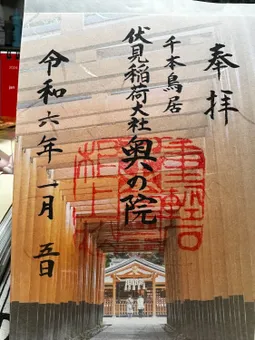 奉拝
千本鳥居
伏見稲荷大社
奥の院
令和六年一月五日